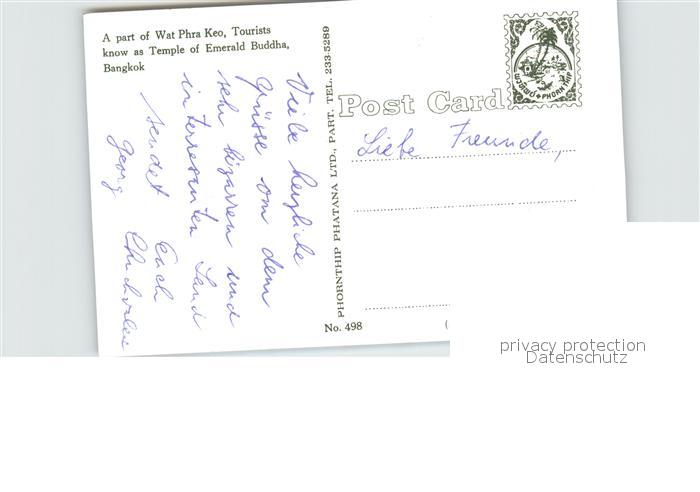 A part of Wat Phra Keo, Tourists
know as Temple of Emerald Buddha,
Bangkok
Viele herzliche
Grüsse vom dem
sehr bizarren und
interresanten Land
sendet Euch
Georg
PHORNTHIP PHATANA LTD., PART. TEL. 233-5289
Post Card
PHORNTHIP
Liebe Freunde,
No. 498
privacy protection
Datenschutz